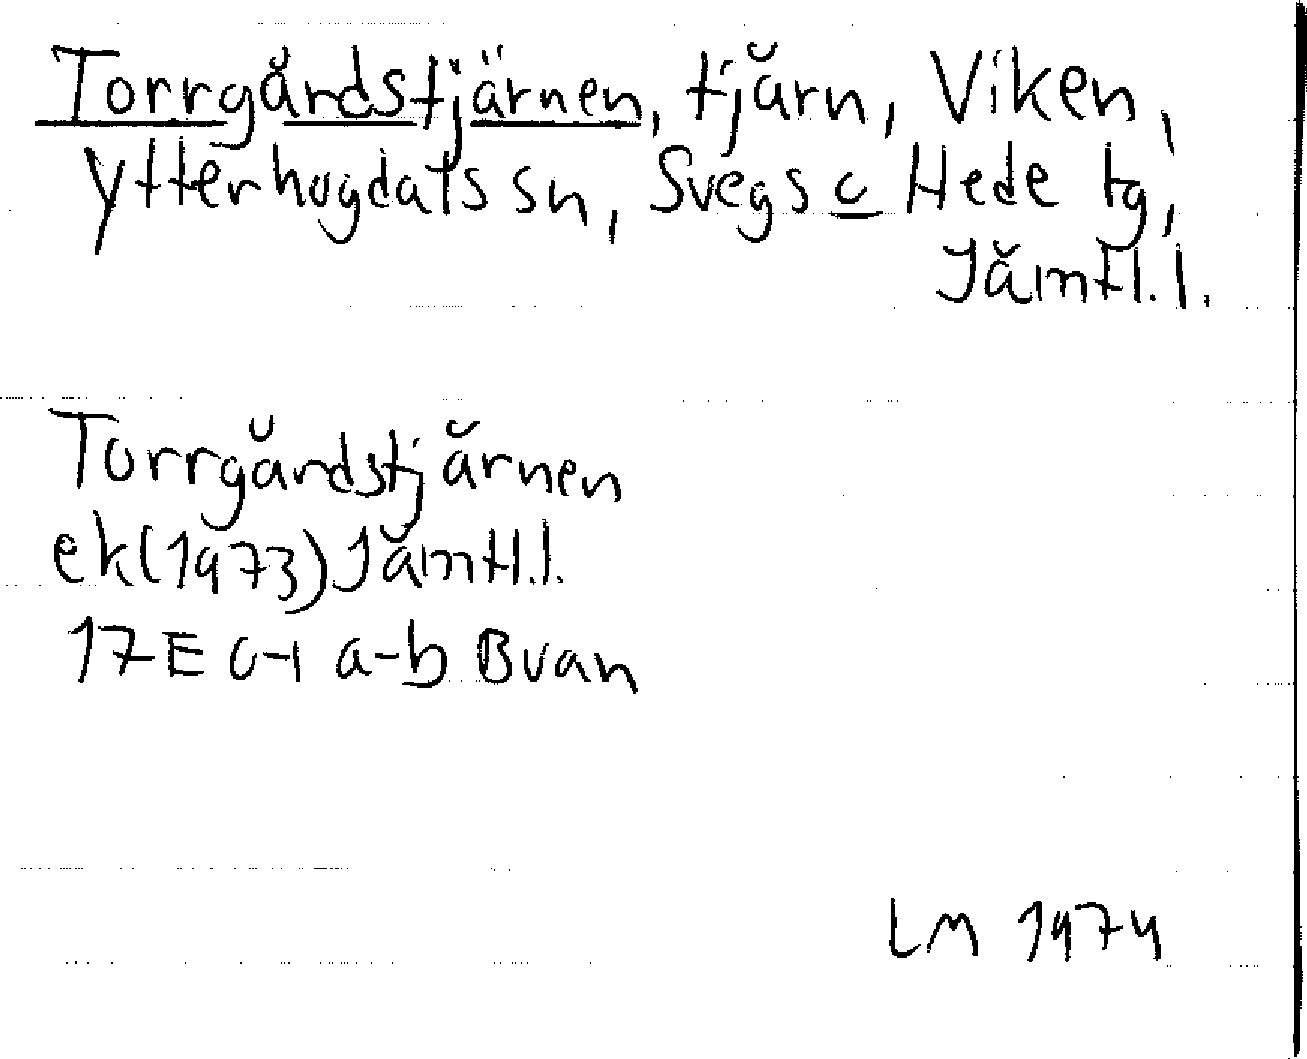 Torrgårdstjärnen, tjärn, Viken,
Ytterhogdals sn, Svegs o Hede tg,
Jämtl.l.
Torrgårdstjärnen
ek(1973) Jämtl.l.
17E a-b Bvan
LM 1974